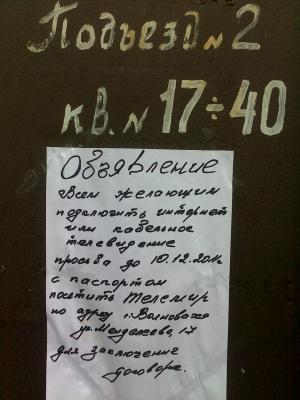 Подъезд № 2
кв. № 17÷40
Объявление
Всем желающим
подключить интернет
или кабельное
телевидение
просьба до 10.12.2011г
с паспортом
посетить Телемир
по адресу г. Волноваха
ул. Менделеева, 17
для заключения
договора.